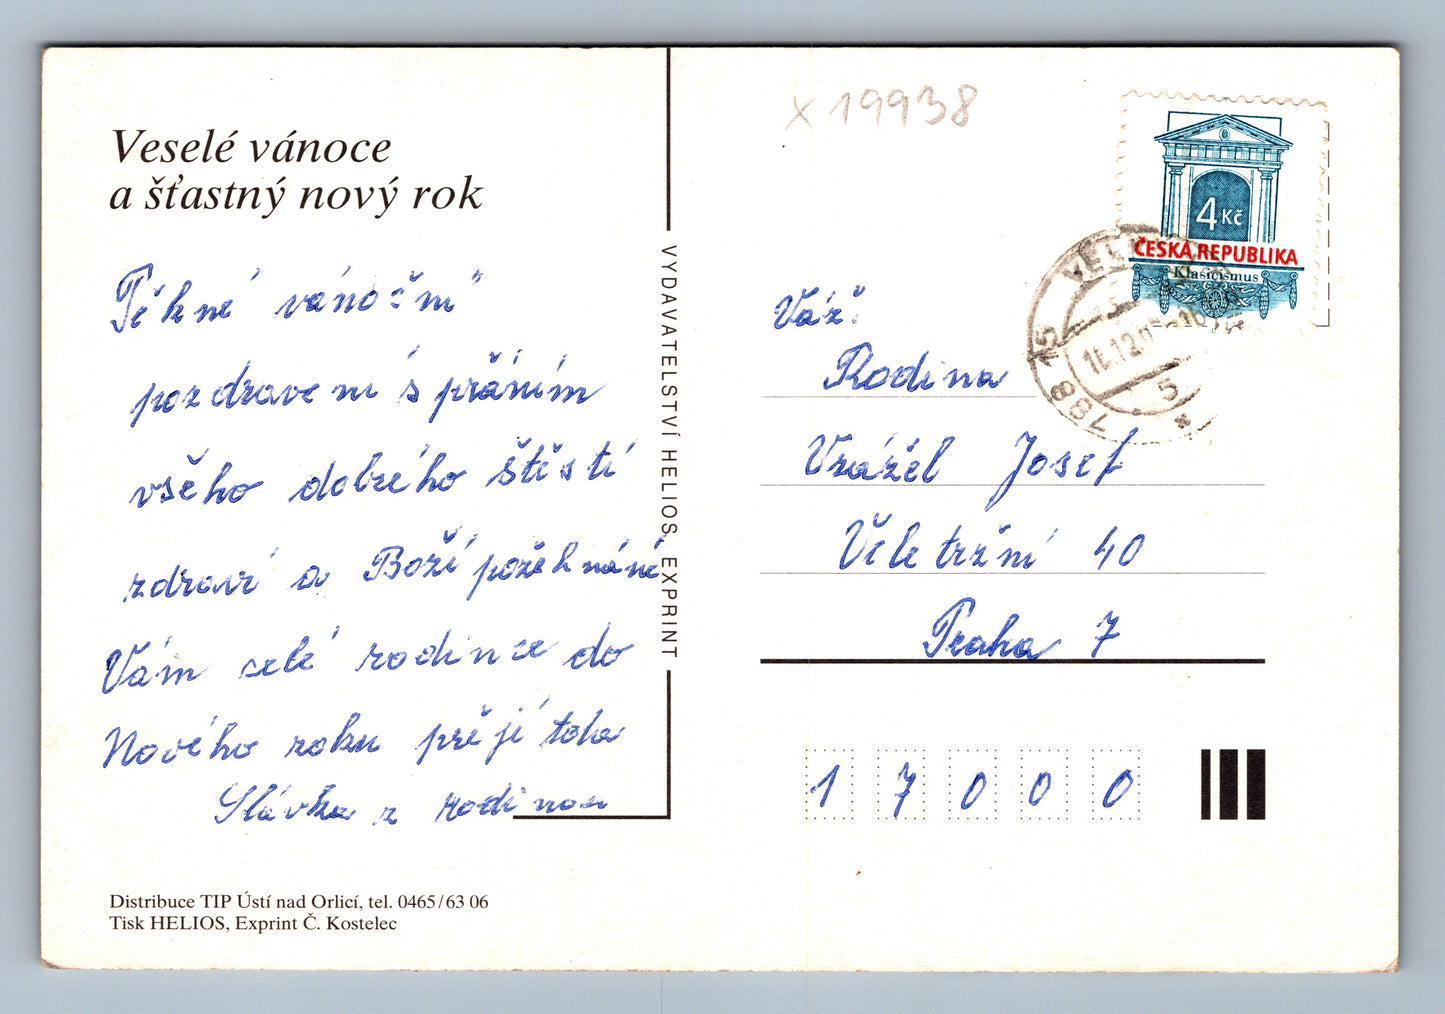 Veselé vánoce
a šťastný nový rok
Pěkné vánoční
pozdravení s přáním
všeho dobrého štěstí
zdraví a Boží požehnání
Vám celé rodince do
Nového roku přejí tola
Slávka z rodinou
Distribuce TIP Ústí nad Orlicí, tel. 0465/63 06
Tisk HELIOS, Exprint Č. Kostelec
VYDAVATELSTVÍ HELIOS, EXPRINT
x 19938
4 Kč
ČESKÁ REPUBLIKA
Klasicismus
788 15
5
Váž.
Rodina
Vrážel Josef
Veletržní 40
Praha 7
17000